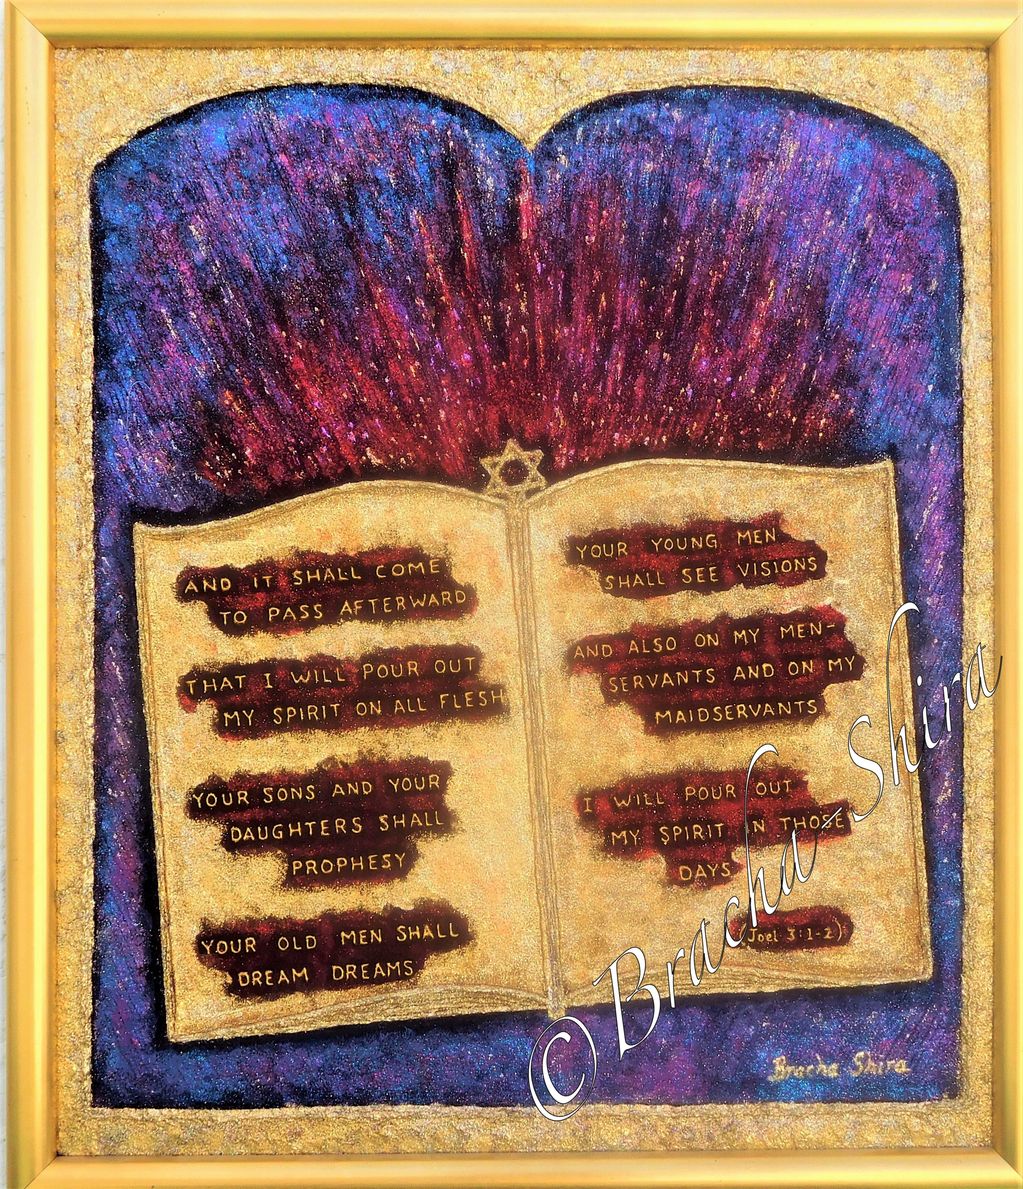 AND IT SHALL COME
TO PASS AFTERWARD
THAT I WILL POUR OUT
MY SPIRIT ON ALL FLESH
YOUR SONS AND YOUR
DAUGHTERS SHALL
PROPHESY
YOUR OLD MEN SHALL
DREAM DREAMS
YOUR YOUNG MEN
SHALL SEE VISIONS
AND ALSO ON MY MEN-
SERVANTS AND ON MY
MAIDSERVANTS
I WILL POUR OUT
MY SPIRIT IN THOSE
DAYS
(Joel 3:1-2)
Bracha Shira
© Bracha-Shira